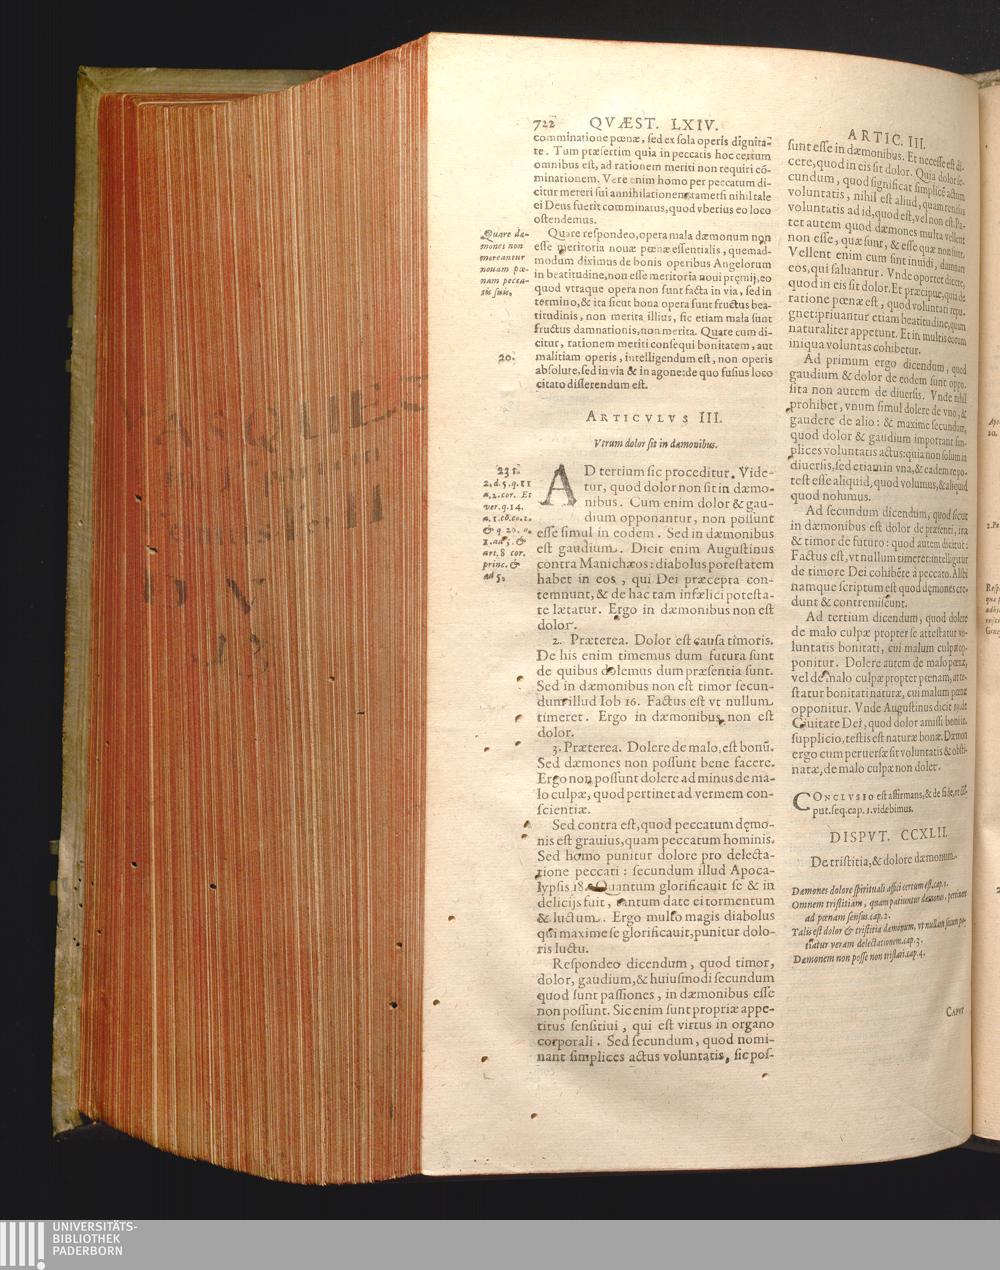 722 QVÆST. LXIV.
comminatione pœnæ, sed ex sola operis dignita-
te. Tum præsertim quia in peccatis hoc certum
omnibus est, ad rationem meriti non requiri cõ-
minationem. Vere enim homo per peccatum di-
citur mereri sui annihilationem, tametsi nihil tale
ei Deus fuerit comminatus, quod vberius eo loco
ostendemus.
Quare dæ-
mones non
mereantur
nouam pœ-
nam pecca-
tis suis.
Quare respondeo, opera mala dæmonum non
esse meritoria nouæ pœnæ essentialis, quemad-
modum diximus de bonis operibus Angelorum
in beatitudine, non esse meritoria noui pręmij, eo
quod vtraque opera non sunt facta in via, sed in
termino, & ita sicut bona opera sunt fructus bea-
titudinis, non merita illius, sic etiam mala sunt
fructus damnationis, non merita. Quare cum di-
citur, rationem meriti consequi bonitatem, aut
20. malitiam operis, intelligendum est, non operis
absolute, sed in via & in agone: de quo fusius loco
citato disserendum est.
ARTICVLVS III.
Vtrum dolor sit in dæmonibus.
231.
2. d. 5. q. 11
a. 2. cor. Et
ver. q. 14.
a. 1. cõ. co. 1.
& q. 20. a.
2. ad 5. &
art. 8 cor.
princ. &
ad 5.
AD tertium sic proceditur. Vide-
tur, quod dolor non sit in dæmo-
nibus. Cum enim dolor & gau-
dium opponantur, non possunt
esse simul in eodem. Sed in dæmonibus
est gaudium. Dicit enim Augustinus
contra Manichæos: diabolus potestatem
habet in eos, qui Dei præcepta con-
temnunt, & de hac tam infælici potesta-
te lætatur. Ergo in dæmonibus non est
dolor.
2. Præterea. Dolor est causa timoris.
De his enim timemus dum futura sunt
de quibus dolemus dum præsentia sunt.
Sed in dæmonibus non est timor secun-
dum illud Iob 16. Factus est vt nullum
timeret. Ergo in dæmonibus non est
dolor.
3. Præterea. Dolere de malo, est bonũ.
Sed dæmones non possunt bene facere.
Ergo non possunt dolere ad minus de ma-
lo culpæ, quod pertinet ad vermem con-
scientiæ.
Sed contra est, quod peccatum dęmo-
nis est grauius, quam peccatum hominis.
Sed homo punitur dolore pro delecta-
tione peccati: secundum illud Apoca-
lypsis 18. Quantum glorificauit se & in
delicijs fuit, tantum date ei tormentum
& luctum. Ergo multo magis diabolus
qui maxime se glorificauit, punitur dolo-
ris luctu.
Respondeo dicendum, quod timor,
dolor, gaudium, & huiusmodi secundum
quod sunt passiones, in dæmonibus esse
non possunt. Sic enim sunt propriæ appe-
titus sensitiui, qui est virtus in organo
corporali. Sed secundum, quod nomi-
nant simplices actus voluntatis, sic pos-
ARTIC. III.
sunt esse in dæmonibus. Et necesse est di-
cere, quod in eis sit dolor. Quia dolor se-
cundum, quod significat simplicē actum
voluntatis, nihil est aliud, quam renisus
voluntatis ad id, quod est, vel non est. Pa-
tet autem quod dæmones multa vellent
non esse, quæ sunt, & esse quæ non sunt.
Vellent enim cum sint inuidi, damnari
eos, qui saluantur. Vnde oportet dicere,
quod in eis sit dolor. Et præcipue, quia de
ratione pœnæ est, quod voluntati repu-
gnet: priuantur etiam beatitudine, quam
naturaliter appetunt. Et in multis eorum
iniqua voluntas cohibetur.
Ad primum ergo dicendum, quod
gaudium & dolor de eodem sunt oppo-
sita non autem de diuersis. Vnde nihil
prohibet, vnum simul dolere de vno, &
gaudere de alio: & maxime secundum,
quod dolor & gaudium important sim-
plices voluntatis actus: quia non solum in
diuersis, sed etiam in vna, & eadem re po-
test esse aliquid, quod volumus, & aliquid
quod nolumus.
Ad secundum dicendum, quod sicut
in dæmonibus est dolor de præsenti, ita
& timor de futuro: quod autem dicitur:
Factus est, vt nullum timeret: intelligitur
de timore Dei cohibēte à peccato. Alibi
namque scriptum est quod dęmones cre-
dunt & contremiscunt.
Ad tertium dicendum, quod dolere
de malo culpæ propter se attestatur vo-
luntatis bonitati, cui malum culpæ op-
ponitur. Dolere autem de malo pœnæ,
vel de malo culpæ propter pœnam, atte-
statur bonitati naturæ, cui malum pœnæ
opponitur. Vnde Augustinus dicit 19. de
Ciuitate Dei, quod dolor amissi boni in
supplicio, testis est naturæ bonæ. Dæmon
ergo cum peruersæ sit voluntatis & obsti-
natæ, de malo culpæ non dolet.
CONCLVSIO est affirmans, & de fide, vt dis-
put. seq. cap. 1. videbimus.
DISPVT. CCXLII.
De tristitia, & dolore dæmonum.
Dæmones dolore spirituali affici certum est, cap. 1.
Omnem tristitiam, quam patiuntur dæmones, pertinet
ad pœnam sensus. cap. 2.
Talis est dolor & tristitia dæmonum, vt nullam secum pa-
tiatur veram delectationem. cap. 3.
Dæmonem non posse non tristari. cap. 4.
CAPVT
UNIVERSITÄTS-
BIBLIOTHEK
PADERBORN